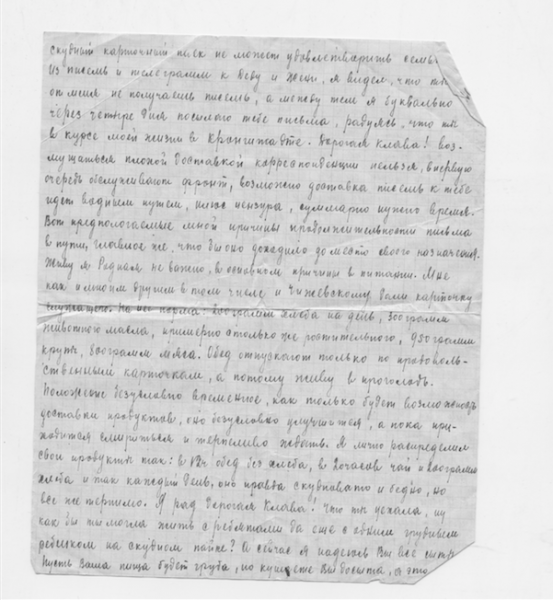 скудный карточный паек не может удовлетворить семь
Из писем и телеграмм к Деду и Жене, я видел, что ты
от меня не получаешь писем, а между тем я буквально
через четыре дня посылаю тебе письма, радуясь, что ты
в курсе моей жизни в Кронштадте. Дорогая Клава! Воз-
мущаться плохой доставкой корреспонденции нельзя, в первую
очередь обслуживают фронт, возможно доставка писем к тебе
идет водным путем, плюс цензура, суммарно нужно время.
Вот предполагаемые мной причины продолжительности письма
в пути, главное же, что бы оно доходило до места своего назначения.
Живу я Родная не важно, в основном причины в питании. Мне
как и многим другим в том числе и Чижевскому дали карточку
служащего. На нее норма: 200 грамм хлеба на день, 300 грамм
животного масла, примерно столько же ростительного, 950 грамм
крупы, 800 грамм мяса. Обед отпускают только по продоволь-
ственным карточкам, а потому живу в проголодь.
Положение безусловно временное, как только будет возможность
доставки продуктов, оно безусловно улучшится, а пока при-
ходится смириться и терпеливо ждать. Я лично распределил
свои продукты так: в 12ч обед без хлеба, в 20 часов чай и 200 грамм
хлеба и так каждый день, оно правда скудновато и бедно, но
все же терпимо. Я рад Дорогая Клава! что ты уехала, ну
как бы ты могла жить с ребятами да еще с одним грудным
ребенком на скудном пайке? А сейчас я надеюсь Вы все сыты.
Пусть Ваша пища будет груба, но кушаете Вы досыта, а это